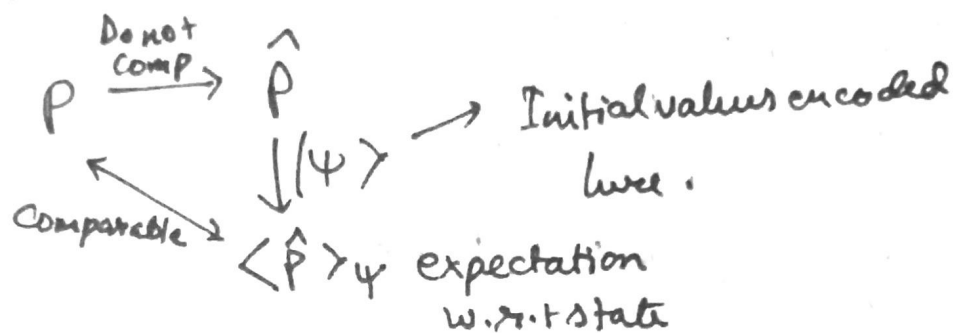 Do not
Comp
P
P̂
|ψ>
Initial values encoded
here.
Comparable
<P̂>ψ expectation
w.r.t state